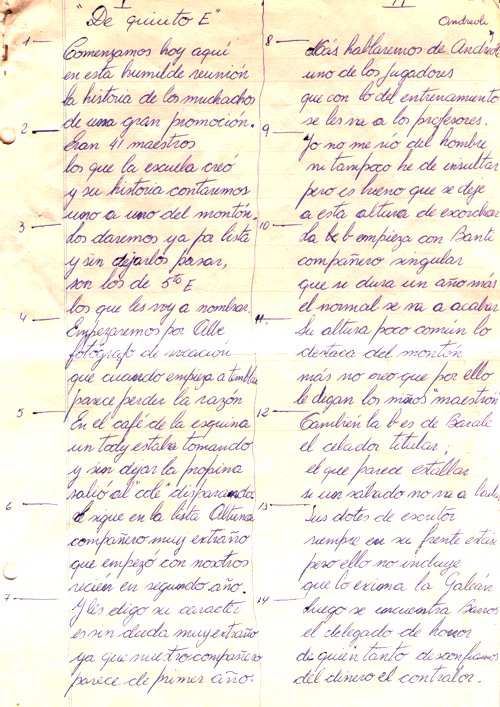 I
"De quinto E"
1
Comenzamos hoy aquí
en esta humilde reunión
la historia de los muchachos
2
de una gran promoción.
Eran 41 maestros
los que la escuela creó
y su historia contaremos
uno a uno del montón.
3
Los daremos ya por lista
y sin dejarlos pasar,
son los de 5to E
los que les voy a nombrar.
4
Empezaremos por Albe
fotógrafo de vocación
que cuando empieza a temblar
parece perder la razón
5
En el café de la esquina
un tody estaba tomando
y sin dejar la propina
salió al "cole" disparando.
6
Le sigue en la lista Altuna
compañero muy extraño
que empezó con nosotros
recién en segundo año.
7
Y les digo su carácter
es sin duda muy extraño
ya que nuestro compañero
parece de primer año.
II
Andreoli
8
Más hablaremos de Andreoli
uno de los jugadores
que con lo del entrenamiento
se les va a los profesores.
9
Yo no me río del hombre
ni tampoco he de insultar
pero es bueno que se deje
a esta altura de escorchar
10
La b empieza con Banti
compañero singular
que si dura un año más
el normal se va a acabar
11
Su altura poco común lo
destaca del montón
más no creo que por ello
le digan los niños "maestrón"
12
También la b es de Baralé
el celador titular;
el que parece estallar
si un sábado no va a bailar
13
Sus dotes de escritor
siempre en su frente están
pero ello no incluye
que lo exima la
14
Luego se encuentra Barros
el delegado de honor
de quien tanto desconfiamos
del dinero el contralor.